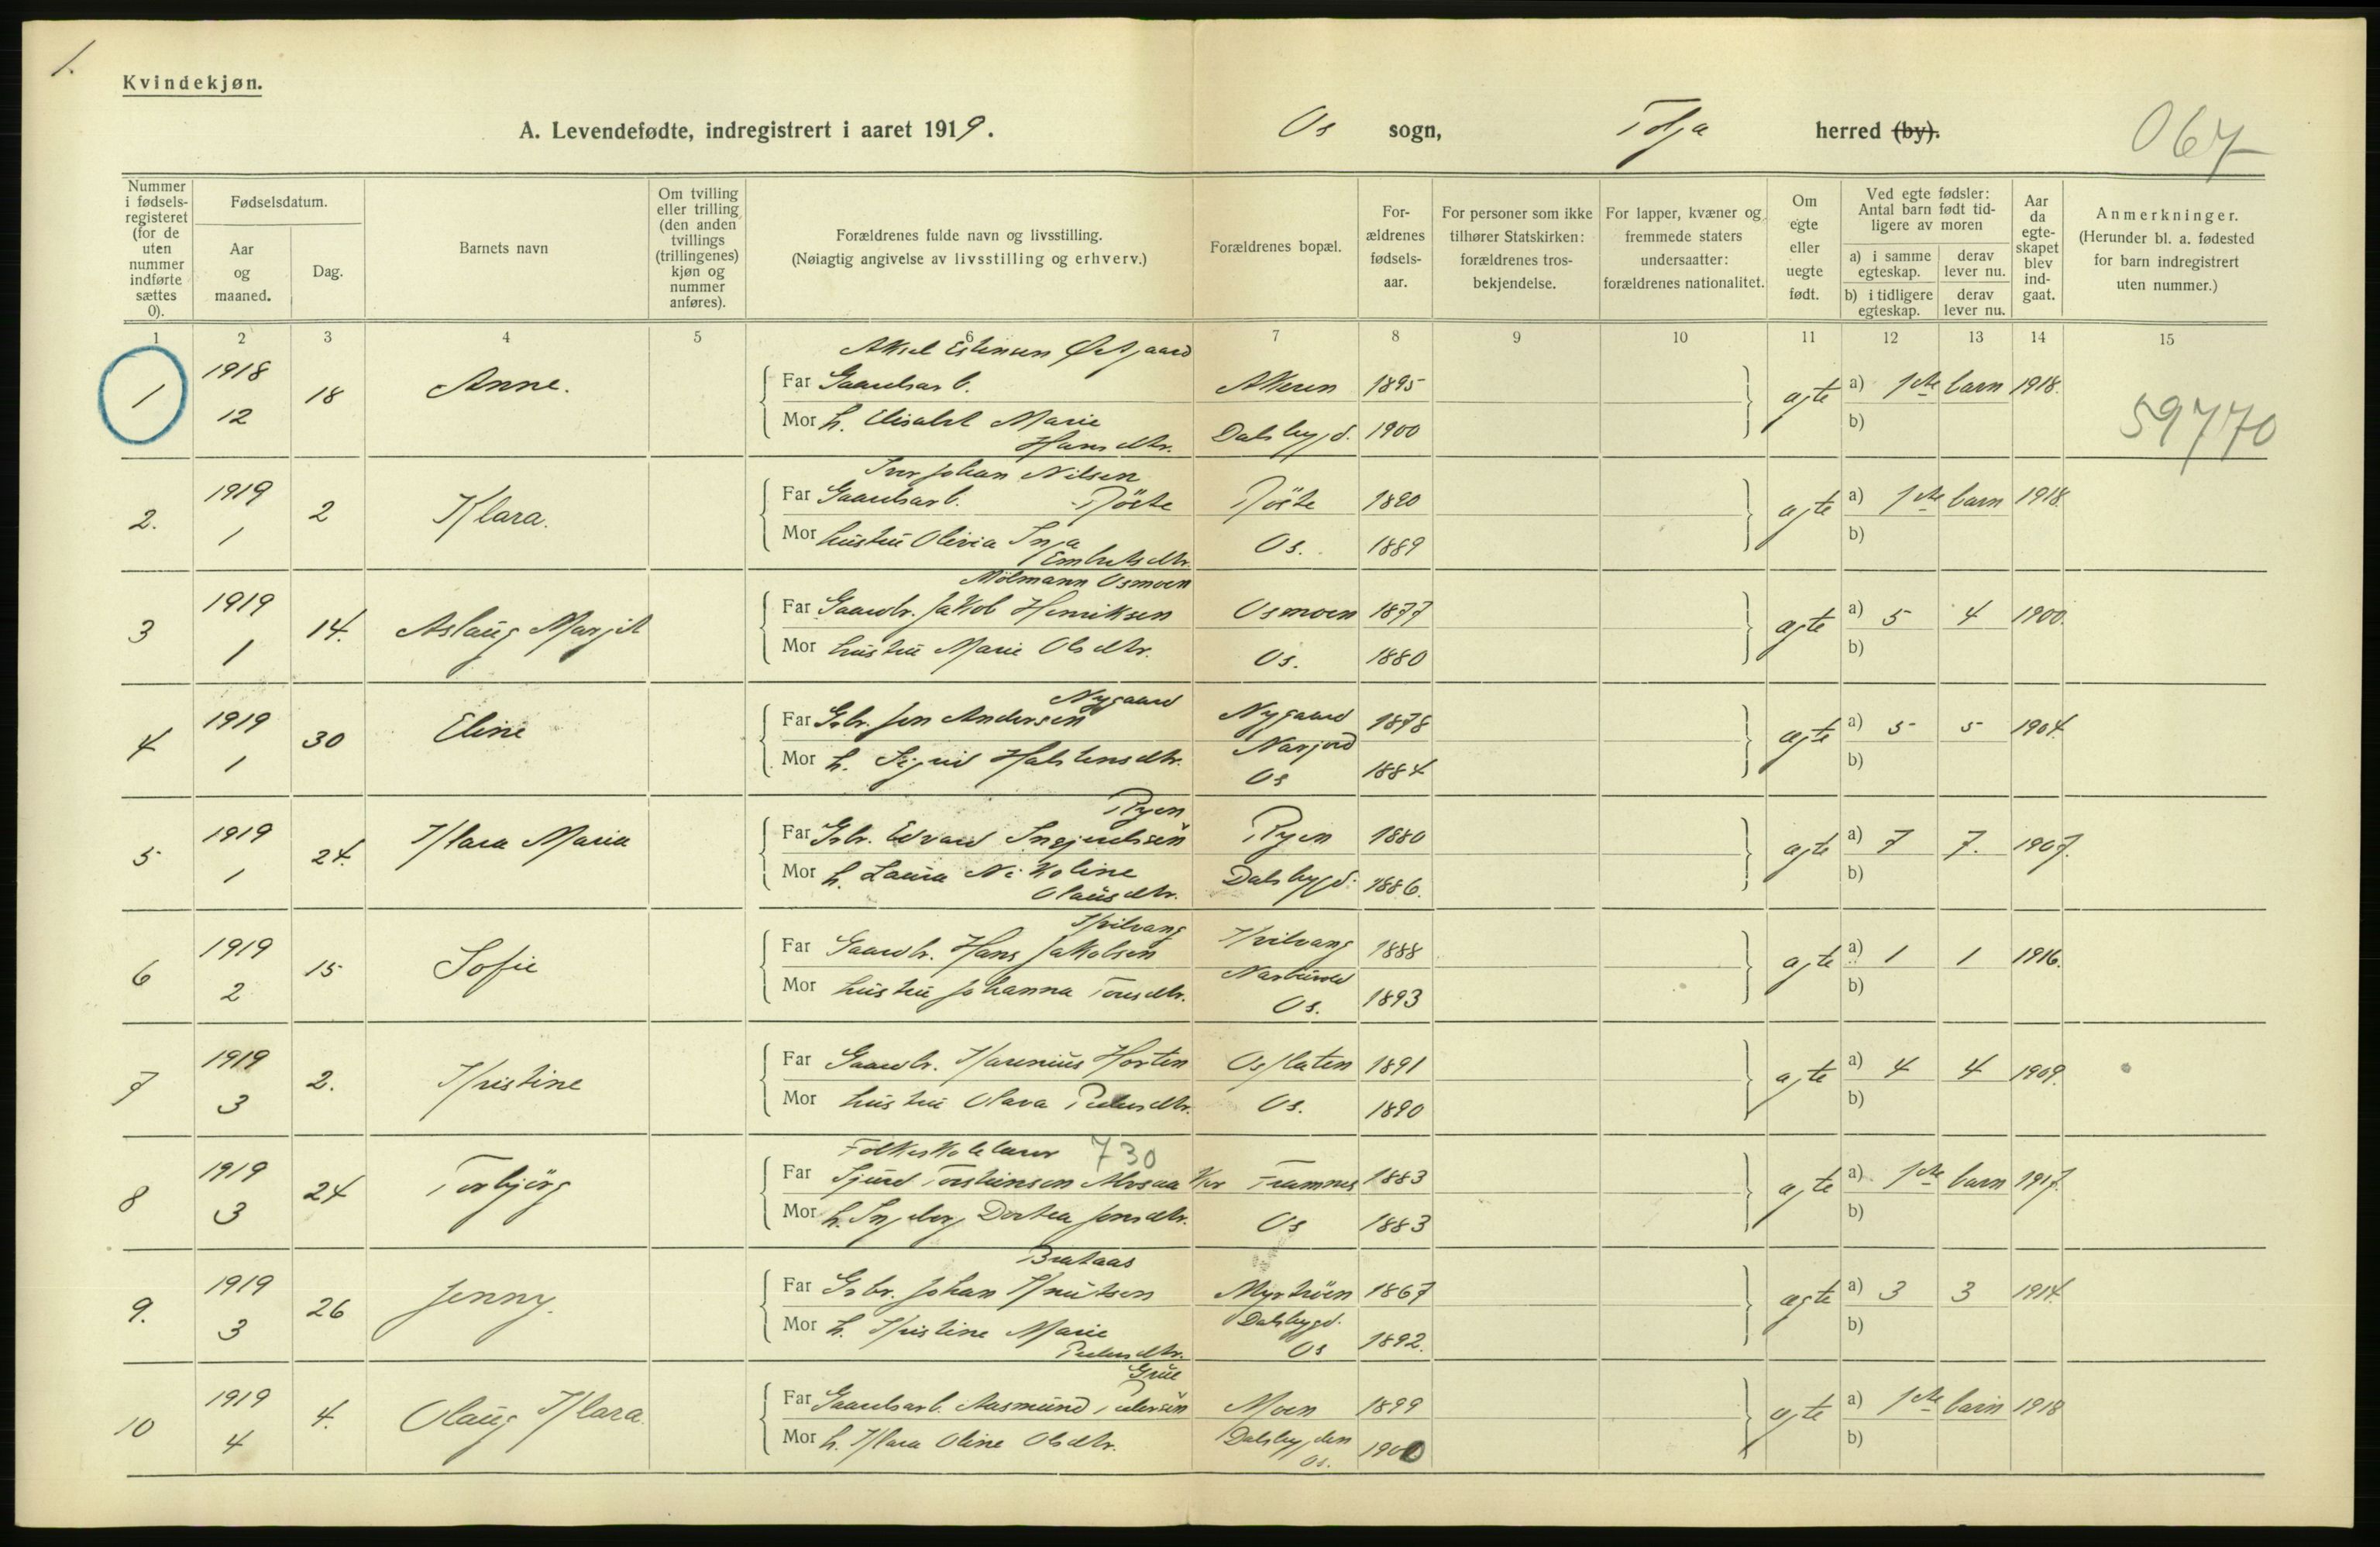 1.
Kvindekjøn.
A. Levendefødte, indregistrert i aaret 1919. Os sogn, Tolga herred (by). 067
Nummer i fødsels-registeret (for de uten nummer indførte sættes 0).
Fødselsdatum.
Aar og maaned.
Dag.
Barnets navn
Om tvilling eller trilling (den anden tvillings (trillingenes) kjøn og nummer anføres).
Forældrenes fulde navn og livsstilling.
(Nøiagtig angivelse av livsstilling og erhverv.)
Forældrenes bopæl.
For-ældrenes fødsels-aar.
For personer som ikke tilhører Statskirken: forældrenes tros-bekjendelse.
For lapper, kvæner og fremmede staters undersaatter: forældrenes nationalitet.
Om egte eller uegte født.
Ved egte fødsler: Antal barn født tid-ligere av moren
a) i samme egteskap.
derav lever nu.
b) i tidligere egteskap.
derav lever nu.
Aar da egte-skapet blev ind-gaat.
Anmerkninger.
(Herunder bl. a. fødested for barn indregistrert uten nummer.)
1 2 3 4 5 6 7 8 9 10 11 12 13 14 15
Aksel Estensen Østgaard
1 1918 12 18 Anne. Far Gaardsarb. Akeren 1895 egte a) 1ste barn 1918.
Mor h. Elisabet Marie Hansdtr. Dalsbygd. 1900 b)
59770
Ivar Johan Nilsen
2. 1919 1 2 Klara. Far Gaardsarb. Röste Röste 1890 egte a) 1ste barn 1918.
Mor hustru Olivia Inga Embretsdtr. Os. 1889 b)
Mölmann Osmoen
3 1919 1 14. Aslaug Margit Far Gaardbr. Jakob Henriksen Osmoen 1877 egte a) 5 4 1900.
Mor hustru Marie Olsdtr. Os. 1880 b)
Nygaard
4 1919 1 30 Eline Far Gbr. Jon Andersen Nygaard 1878 egte a) 5 5 1904.
Mor h. Sigrid Halstensdtr. Narjord Os 1884 b)
Ryen
5 1919 1 24. Klara Maria Far Gbr. Edvard Ingebrethsen Ryen 1880 egte a) 7 7. 1907.
Mor h. Laura Nikoline Olausdtr. Dalsbygd. 1886. b)
Kvilvang
6 1919 2 15 Sofie Far Gaardbr. Hans Jakobsen Kvilvang 1888 egte a) 1 1 1916.
Mor hustru Johanna Toresdtr. Narbuvold Os. 1893 b)
7 1919 3 2. Kristine Far Gaardbr. Karenius Horten Osflaten 1891 egte a) 4 4 1909.
Mor hustru Olava Pedersdtr. Os. 1890 b)
Folkeskolelærer 730
8 1919 3 24 Torbjörg Far Sjurd Torsteinsen Framnes 1883 egte a) 1ste barn 1917.
Mor h. Ingeborg Dortea Jonsdtr. Os 1883 b)
Brataas
9. 1919 3 26 Jenny. Far Gbr. Johan Knutsen Myrhöen 1867 egte a) 3 3 1914.
Mor h. Kristine Marie Pedersdtr. Dalsbygd. Os 1892. b)
Grue
10 1919 4 4. Olaug Klara. Far Gaardsarb. Aasmund Pedersen Moen 1899 egte a) 1ste barn 1918
Mor h. Klara Oline Olsdtr. Dalsbygden Os. 1900 b)